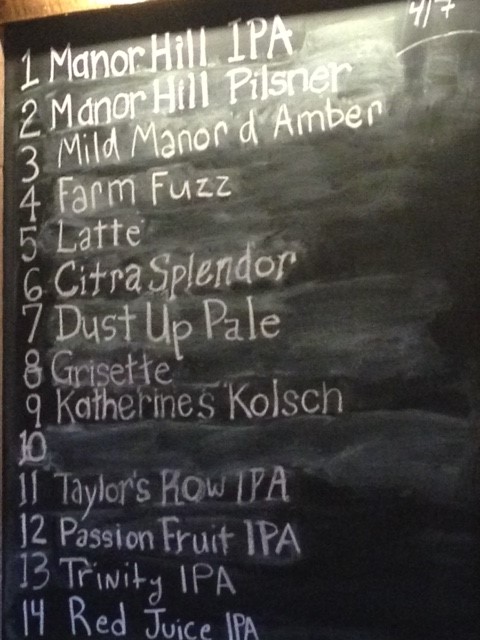 4/7
1 Manor Hill IPA
2 Manor Hill Pilsner
3 Mild Manor'd Amber
4 Farm Fuzz
5 Latte
6 Citra Splendor
7 Dust Up Pale
8 Grisette
9 Katherine's Kolsch
10
11 Taylor's Row IPA
12 Passion Fruit IPA
13 Trinity IPA
14 Red Juice IPA